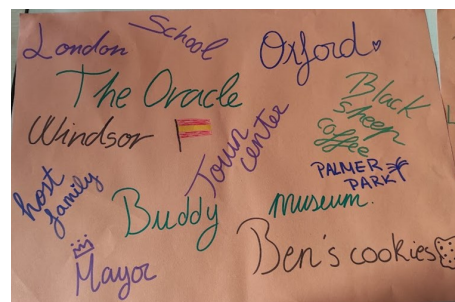 London
School
Oxford
The Oracle
Black
sheep
coffee
Windsor
Town
center
PALMER
PARK
host
family
Buddy
museum.
Ben's cookies
Mayor